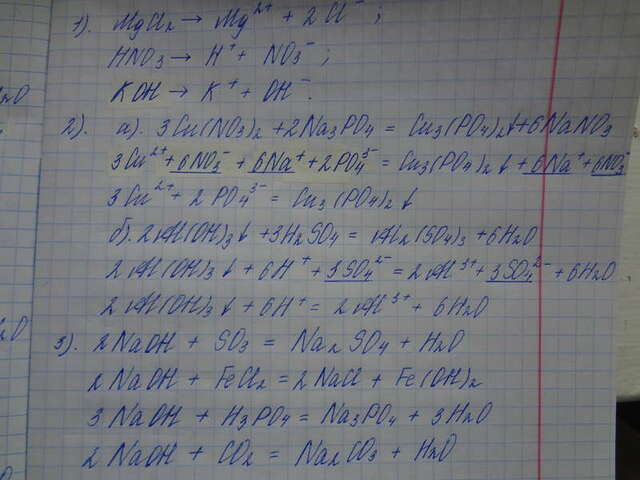 1). MgCl₂ → Mg²⁺ + 2Cl⁻ ;
HNO₃ → H⁺ + NO₃⁻ ;
KOH → K⁺ + OH⁻.
2). а). 3Cu(NO₃)₂ + 2Na₃PO₄ = Cu₃(PO₄)₂↓ + 6NaNO₃
3Cu²⁺ + 6NO₃⁻ + 6Na⁺ + 2PO₄³⁻ = Cu₃(PO₄)₂↓ + 6Na⁺ + 6NO₃⁻
3Cu²⁺ + 2PO₄³⁻ = Cu₃(PO₄)₂↓
б). 2Al(OH)₃↓ + 3H₂SO₄ = Al₂(SO₄)₃ + 6H₂O
2Al(OH)₃↓ + 6H⁺ + 3SO₄²⁻ = 2Al³⁺ + 3SO₄²⁻ + 6H₂O
2Al(OH)₃↓ + 6H⁺ = 2Al³⁺ + 6H₂O
3). 2NaOH + SO₃ = Na₂SO₄ + H₂O
2NaOH + FeCl₂ = 2NaCl + Fe(OH)₂
3NaOH + H₃PO₄ = Na₃PO₄ + 3H₂O
2NaOH + CO₂ = Na₂CO₃ + H₂O